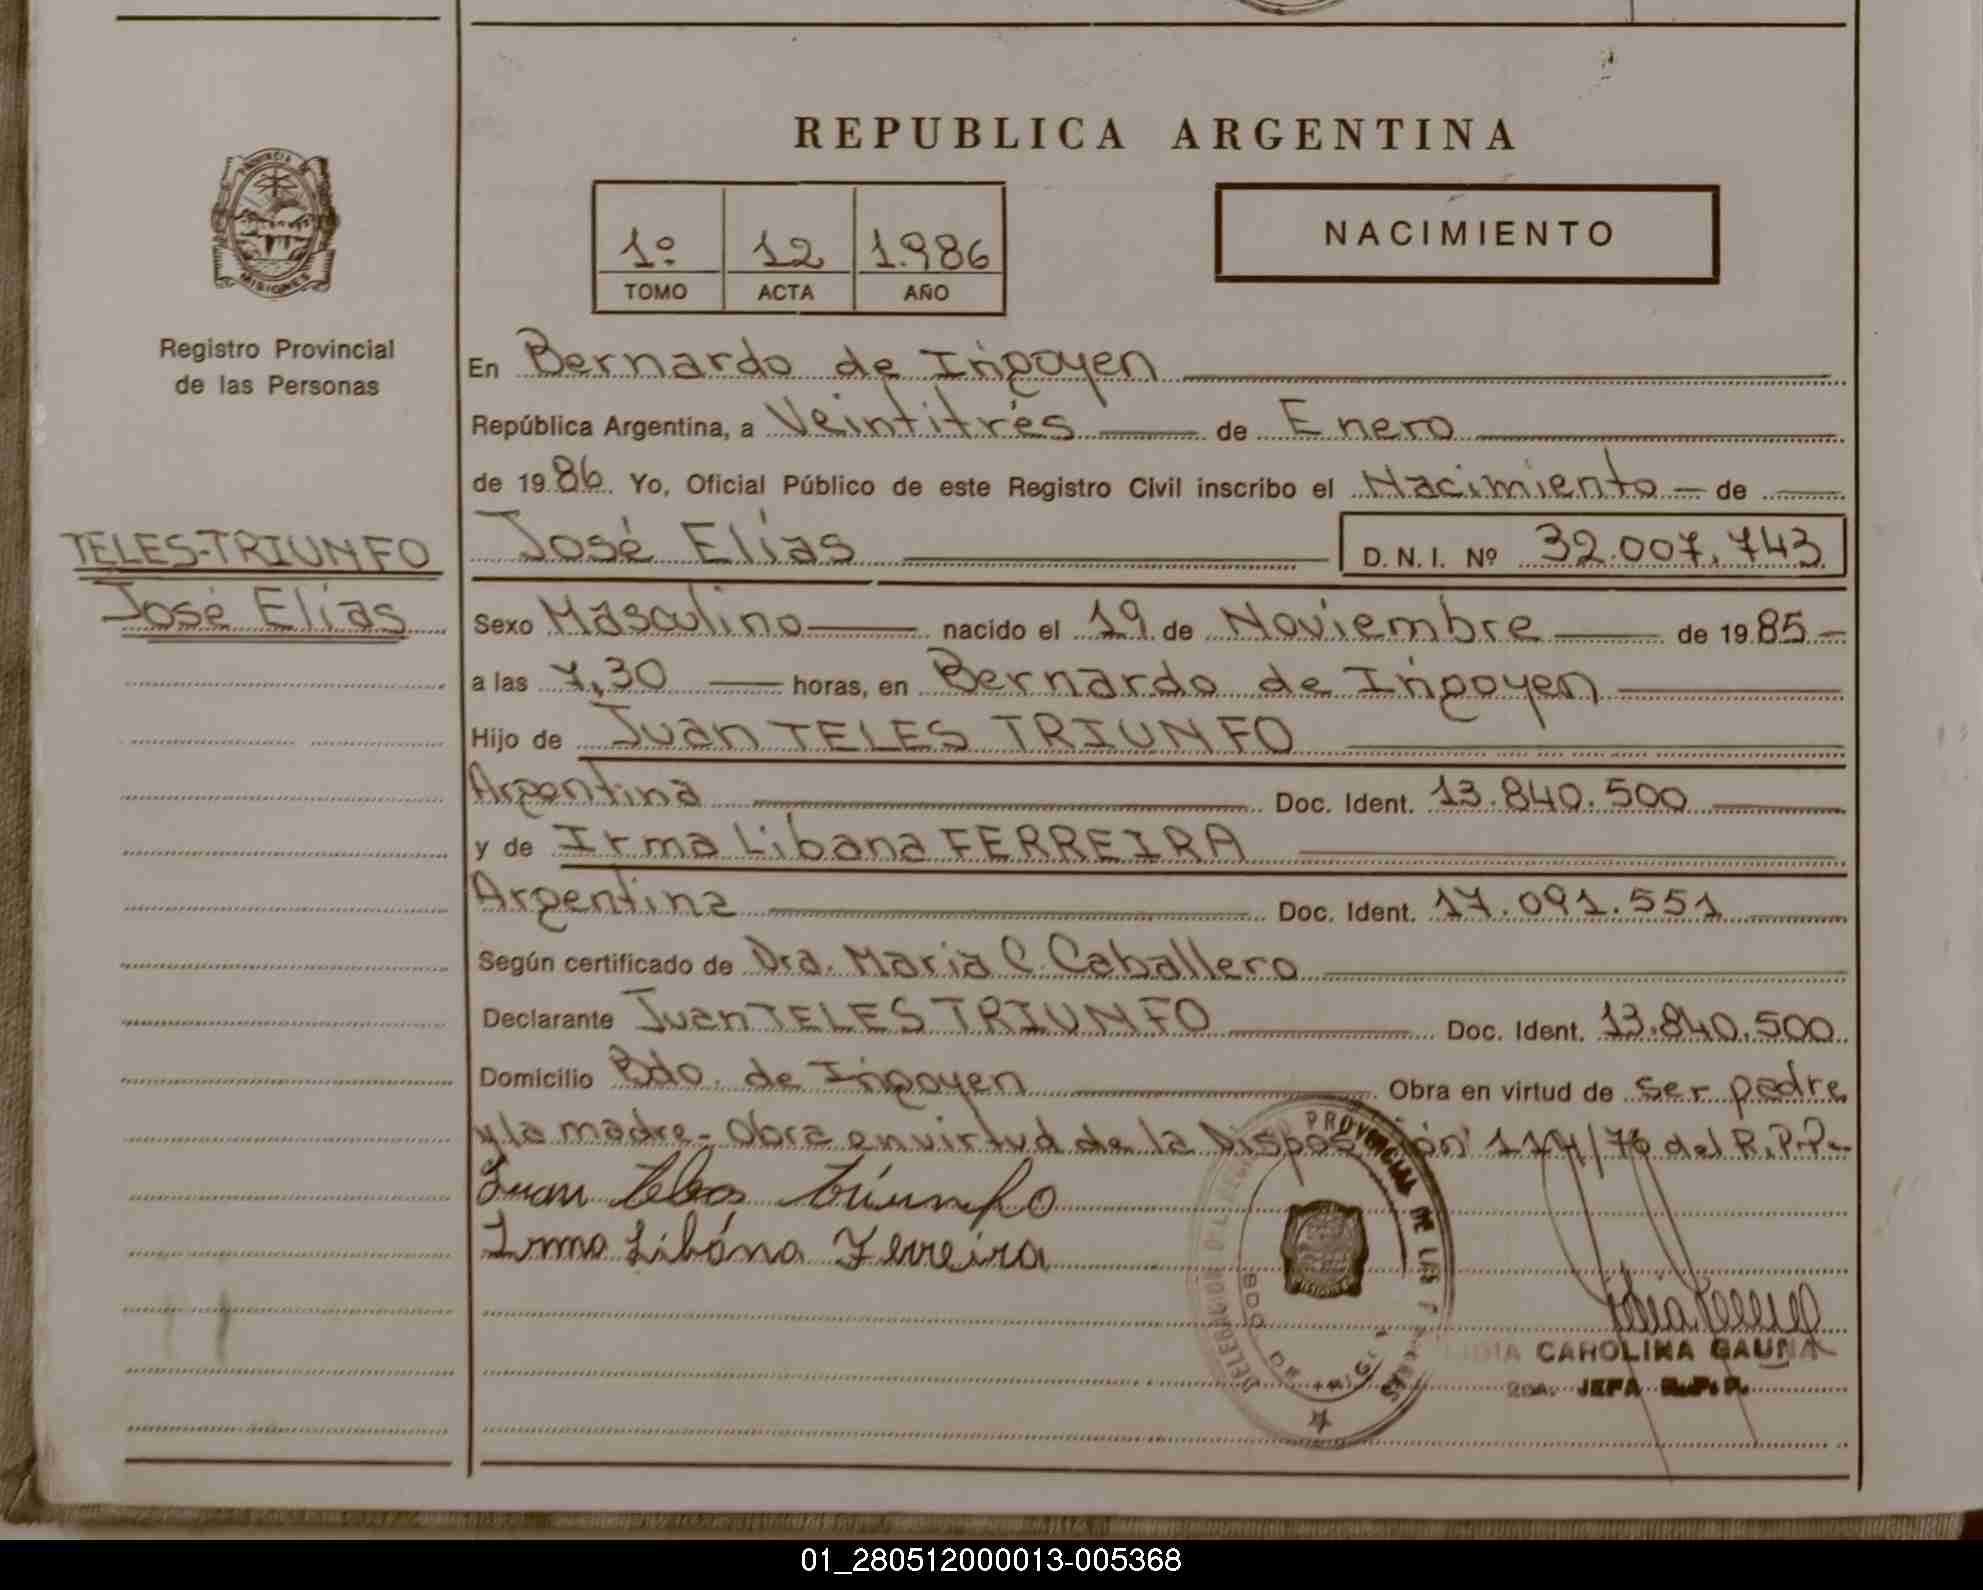 REPUBLICA ARGENTINA
PROVINCIA DE MISIONES
Registro Provincial
de las Personas
1º 12 1.986
TOMO ACTA AÑO
NACIMIENTO
En Bernardo de Irigoyen
República Argentina, a Veintitrés de Enero
de 1986. Yo, Oficial Público de este Registro Civil inscribo el Nacimiento de
TELES-TRIUNFO
José Elías
José Elías D.N.I. Nº 32.007.743
Sexo Masculino nacido el 19 de Noviembre de 1985
a las 7,30 horas, en Bernardo de Irigoyen
Hijo de Juan TELES TRIUNFO
Argentina Doc. Ident. 13.840.500
y de Irma Libana FERREIRA
Argentina Doc. Ident. 17.091.551
Según certificado de Dra. Maria C. Caballero
Declarante Juan TELES TRIUNFO Doc. Ident. 13.840.500
Domicilio Bdo. de Irigoyen Obra en virtud de ser padre
y la madre- Obra en virtud de la Disposición 117/76 del R.P.P.
Juan Teles Triunfo
Irma Libána Ferreira
PROVINCIAL DE LAS
LIDIA CAROLINA GAUNA
2da. JEFA R.P.P.
01_280512000013-005368